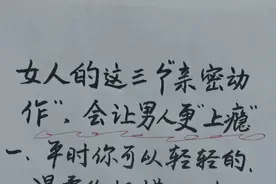 女人的这三个"亲密动
作"，会让男人更"上瘾"
一、平时你可以轻轻的、